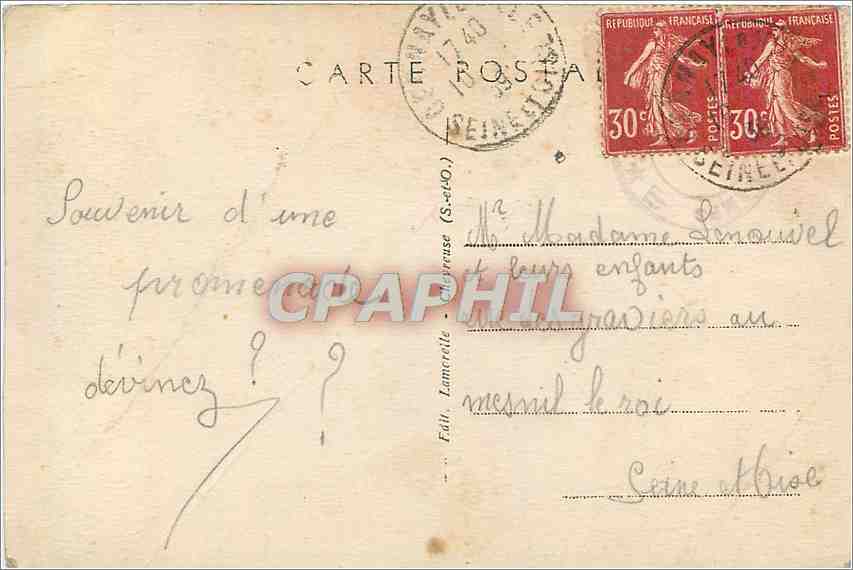 CARTE POSTA
17 40
10
SEINE ET OISE
REPUBLIQUE FRANÇAISE
30c
POSTES
REPUBLIQUE FRANÇAISE
30c
POSTES
SEINE ET
Souvenir d'une
promenade
dévinez ? ?
Edit. Lamoreite - Chevreuse (S.-et-O.)
Mr Madame Lenouvel
et leurs enfants
rue des graviers au
mesnil le roi
Seine et Oise
CPAPHIL